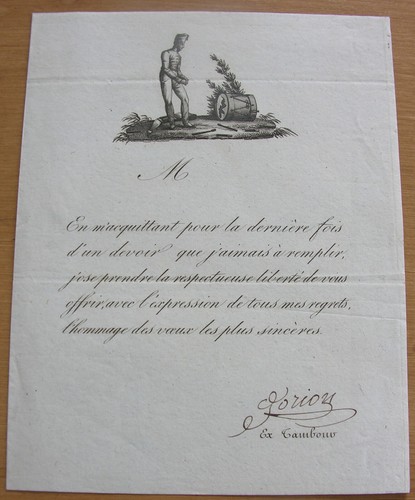 M
En m'acquittant pour la dernière fois
d'un devoir que j'aimais à remplir,
j'ose prendre la respectueuse liberté de vous
offrir, avec l'expression de tous mes regrets,
l'hommage des vœux les plus sincères.
Lorion
Ex Tambour